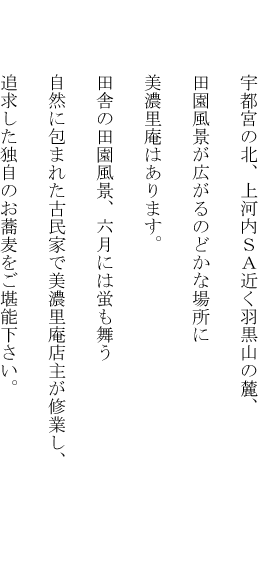 宇都宮の北、上河内ＳＡ近く羽黒山の麓、
田園風景が広がるのどかな場所に
美濃里庵はあります。
田舎の田園風景、六月には蛍も舞う
自然に包まれた古民家で美濃里庵店主が修業し、
追求した独自のお蕎麦をご堪能下さい。